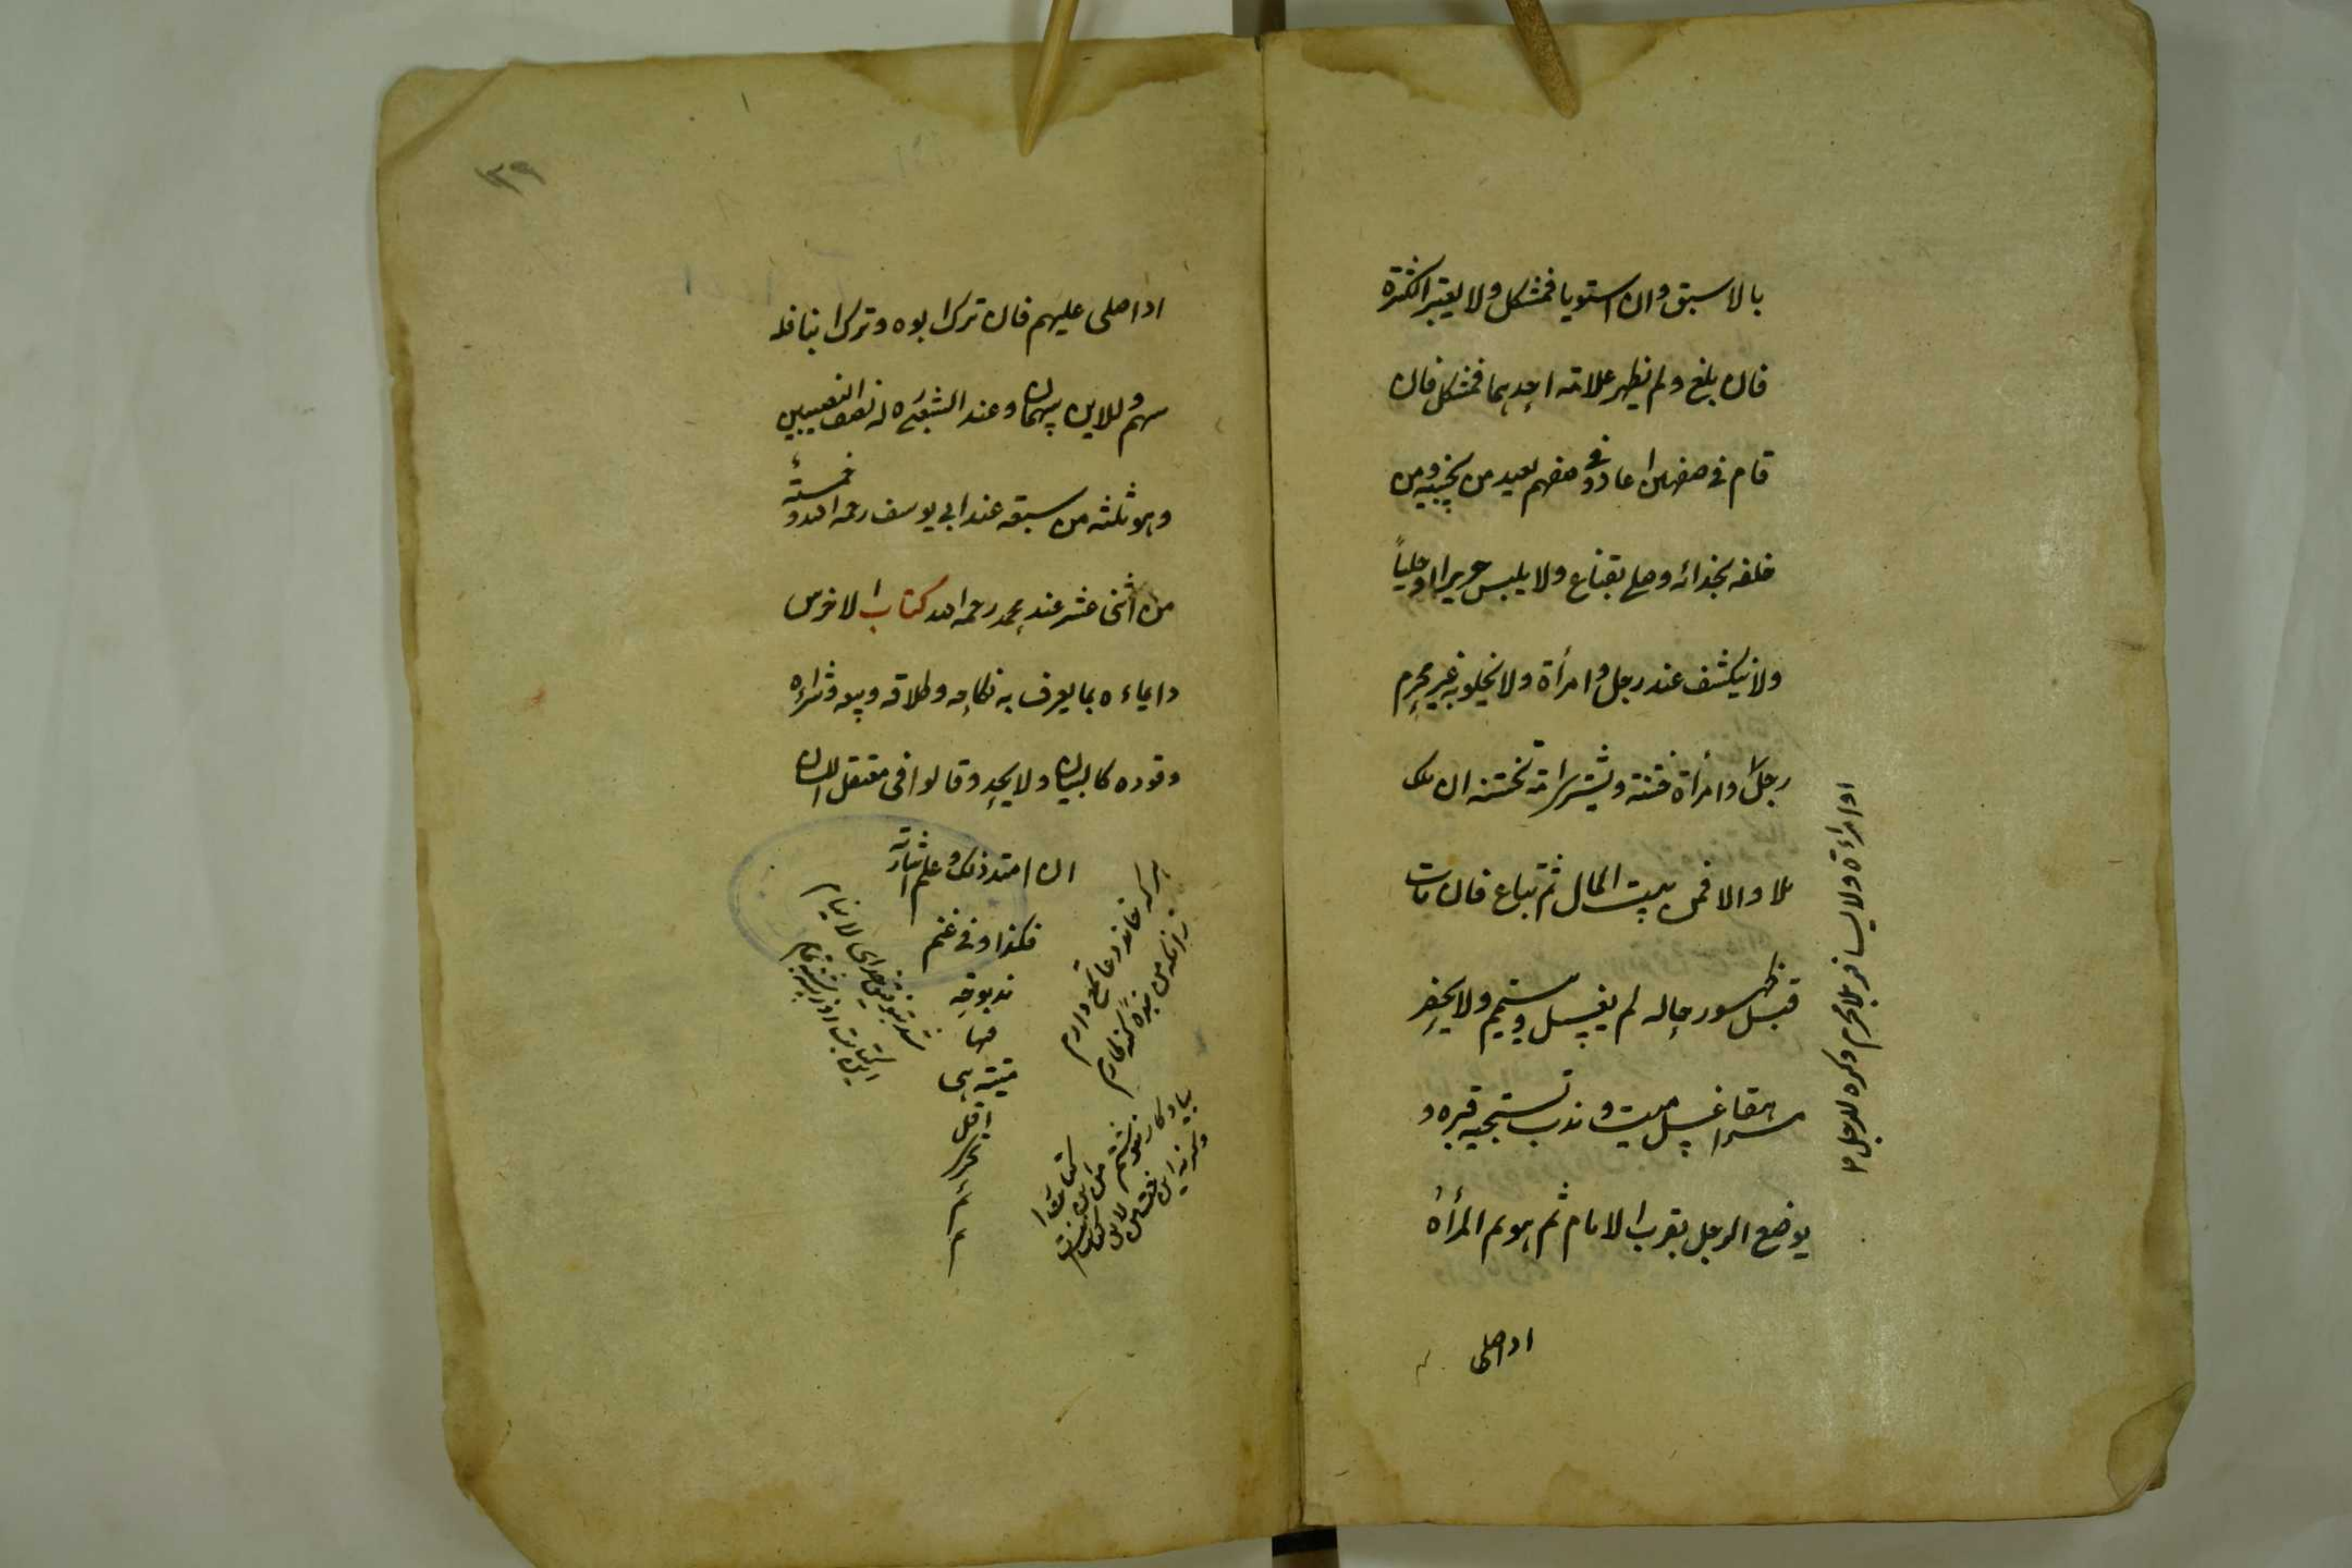 بالاسبق وان استويا فمشكل ولا يعتبر الكثرة
فان بلغ ولم يظهر علامة احدهما فمشكل فان
قام في صفهن اعاد وفي صفهم يعيد من بجنبيه ومن
خلفه بحذائه وصلى بقناع ولا يلبس حريرا او حليا
ولا يكشف عند رجل وامرأة ولا يخلو به غير محرم
رجل وامرأة ختنه ويشترى امة تختنه ان ملك
مالا والا فمن بيت المال ثم تباع فان مات
قبل ظهور حاله لم يغسل وتيمم ولا يحضر
مراهقا غسل ميت وندب تسجية قبره و
يوضع الرجل بقرب الامام ثم هو ثم المرأة
او امرأة ولا يسافر بلا محرم وكره للرجل
اذا صلى
١٣٩
اذا صلى عليهم فان ترك ابوه وترك ابنا فله
سهم وللابن سهمان وعند الشعبي له نصف النصيبين
وهو ثلثة من سبعة عند ابي يوسف رحمه الله وخمسة
من اثنى عشر عند محمد رحمه الله كتاب الاخرس
وايماءه بما يعرف به نكاحه وطلاقه وبيعه وشراءه
وقوده كالبيان ولا يحد وقالوا في معتقل اللسان
ان امتد ذلك وعلم اشارته
فكذا وفي غنم
مذبوحة
فيها
ميتة هي
اقل
تحرى
هر كه خاند دعا طمع دارم
زانكه من بنده كنه كارم